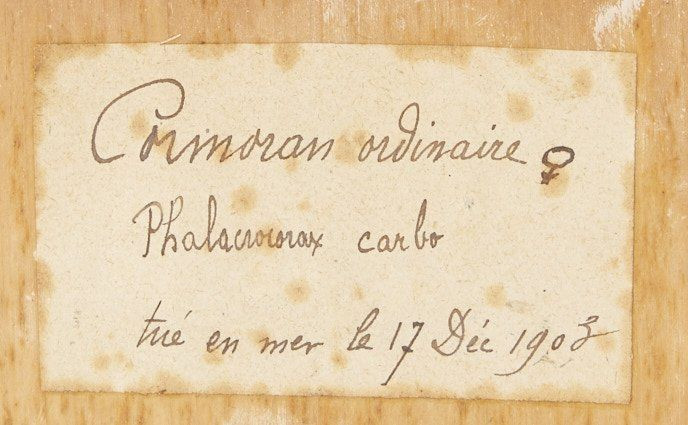 Cormoran ordinaire ♀
Phalacrocorax carbo
tué en mer le 17 Déc 1903